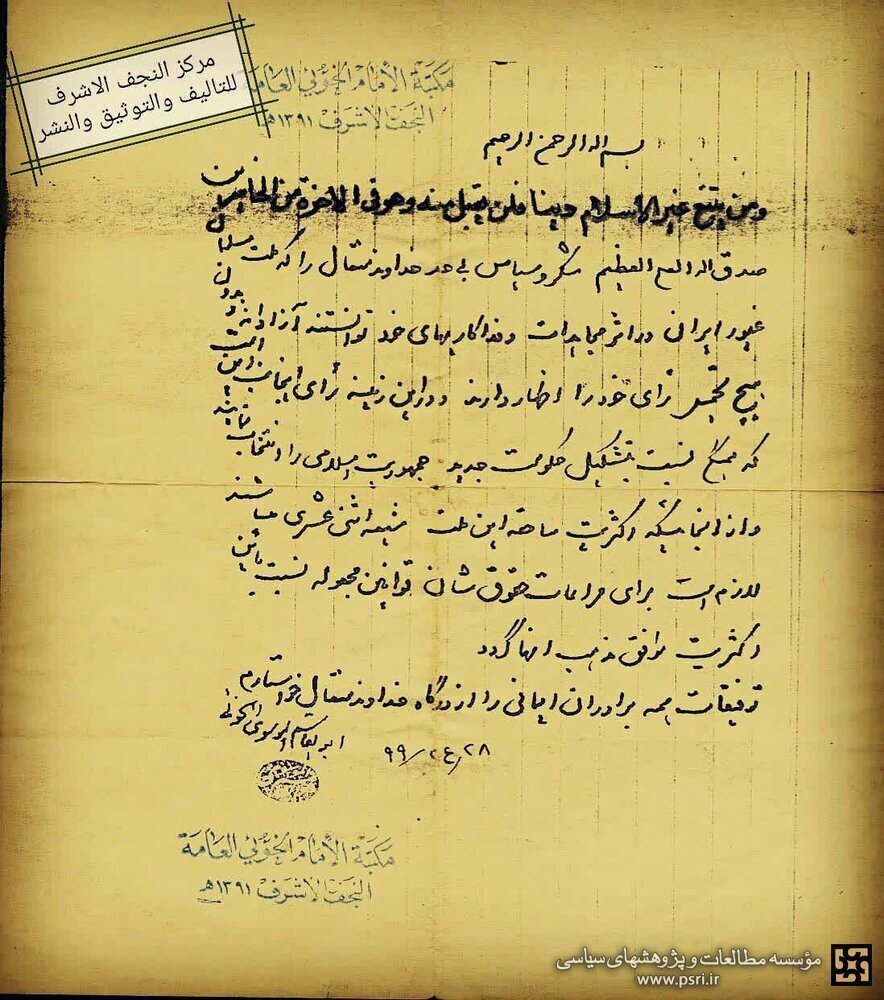 مركز النجف الاشرف
للتاليف والتوثيق والنشر
مكتبة الأمام الخوئي العامة
النجف الاشرف ١٣٩١هـ
بسم الله الرحمن الرحيم
ومن يبتغ غير الاسلام دينا فلن يقبل منه وهو فى الاخرة من الخاسرين
صدق الله العلي العظيم شكر و سپاس بى حد خداوند متعال را كه ملت مسلمان
غيور ايران در اثر مجاهدات و فداكاريهاى خود توانستند آزادانه و بدون
هيچ تحميل رأى خود را اظهار دارند و در اين زمينه رأى اينجانب اين است
كه همگى نسبت بتشكيل حكومت جديد جمهوريت اسلامى را انتخاب نمايند
و از آنجائيكه اكثريت ساحقه اين ملت شيعه اثنى عشرى ميباشند
لازم است براى مراعات حقوق شان قوانين مجعوله نسبت باين
اكثريت موافق مذهب انها گردد
توفيقات همه برادران ايمانى را از درگاه خداوند متعال خواستارم
ابوالقاسم الموسوى الخوئى
٢٨/ع٢/٩٩
مكتبة الأمام الخوئي العامة
النجف الاشرف ١٣٩١هـ
مؤسسه مطالعات و پژوهشهای سیاسی
www.psri.ir